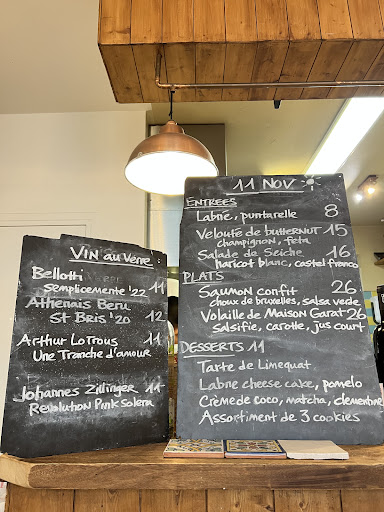 VIN au Verre
Bellotti 11
semplicemente '22
Athenais Beru
St Bris '20 12
Arthur Lotrous 11
Une Tranche d'amour
Johannes Zillinger 11
Revolution Pink Solera
11 NOV
ENTREES
Labne, puntarelle 8
Velouté de butternut 15
champignon, feta
Salade de Seiche 16
haricot blanc, castel franco
PLATS
Saumon confit 26
choux de bruxelles, salsa verde
Volaille de Maison Garat 26
salsifie, carotte, jus court
DESSERTS 11
Tarte de Limequat
Labne cheese cake, pomelo
Crème de coco, matcha, clementine
Assortiment de 3 cookies